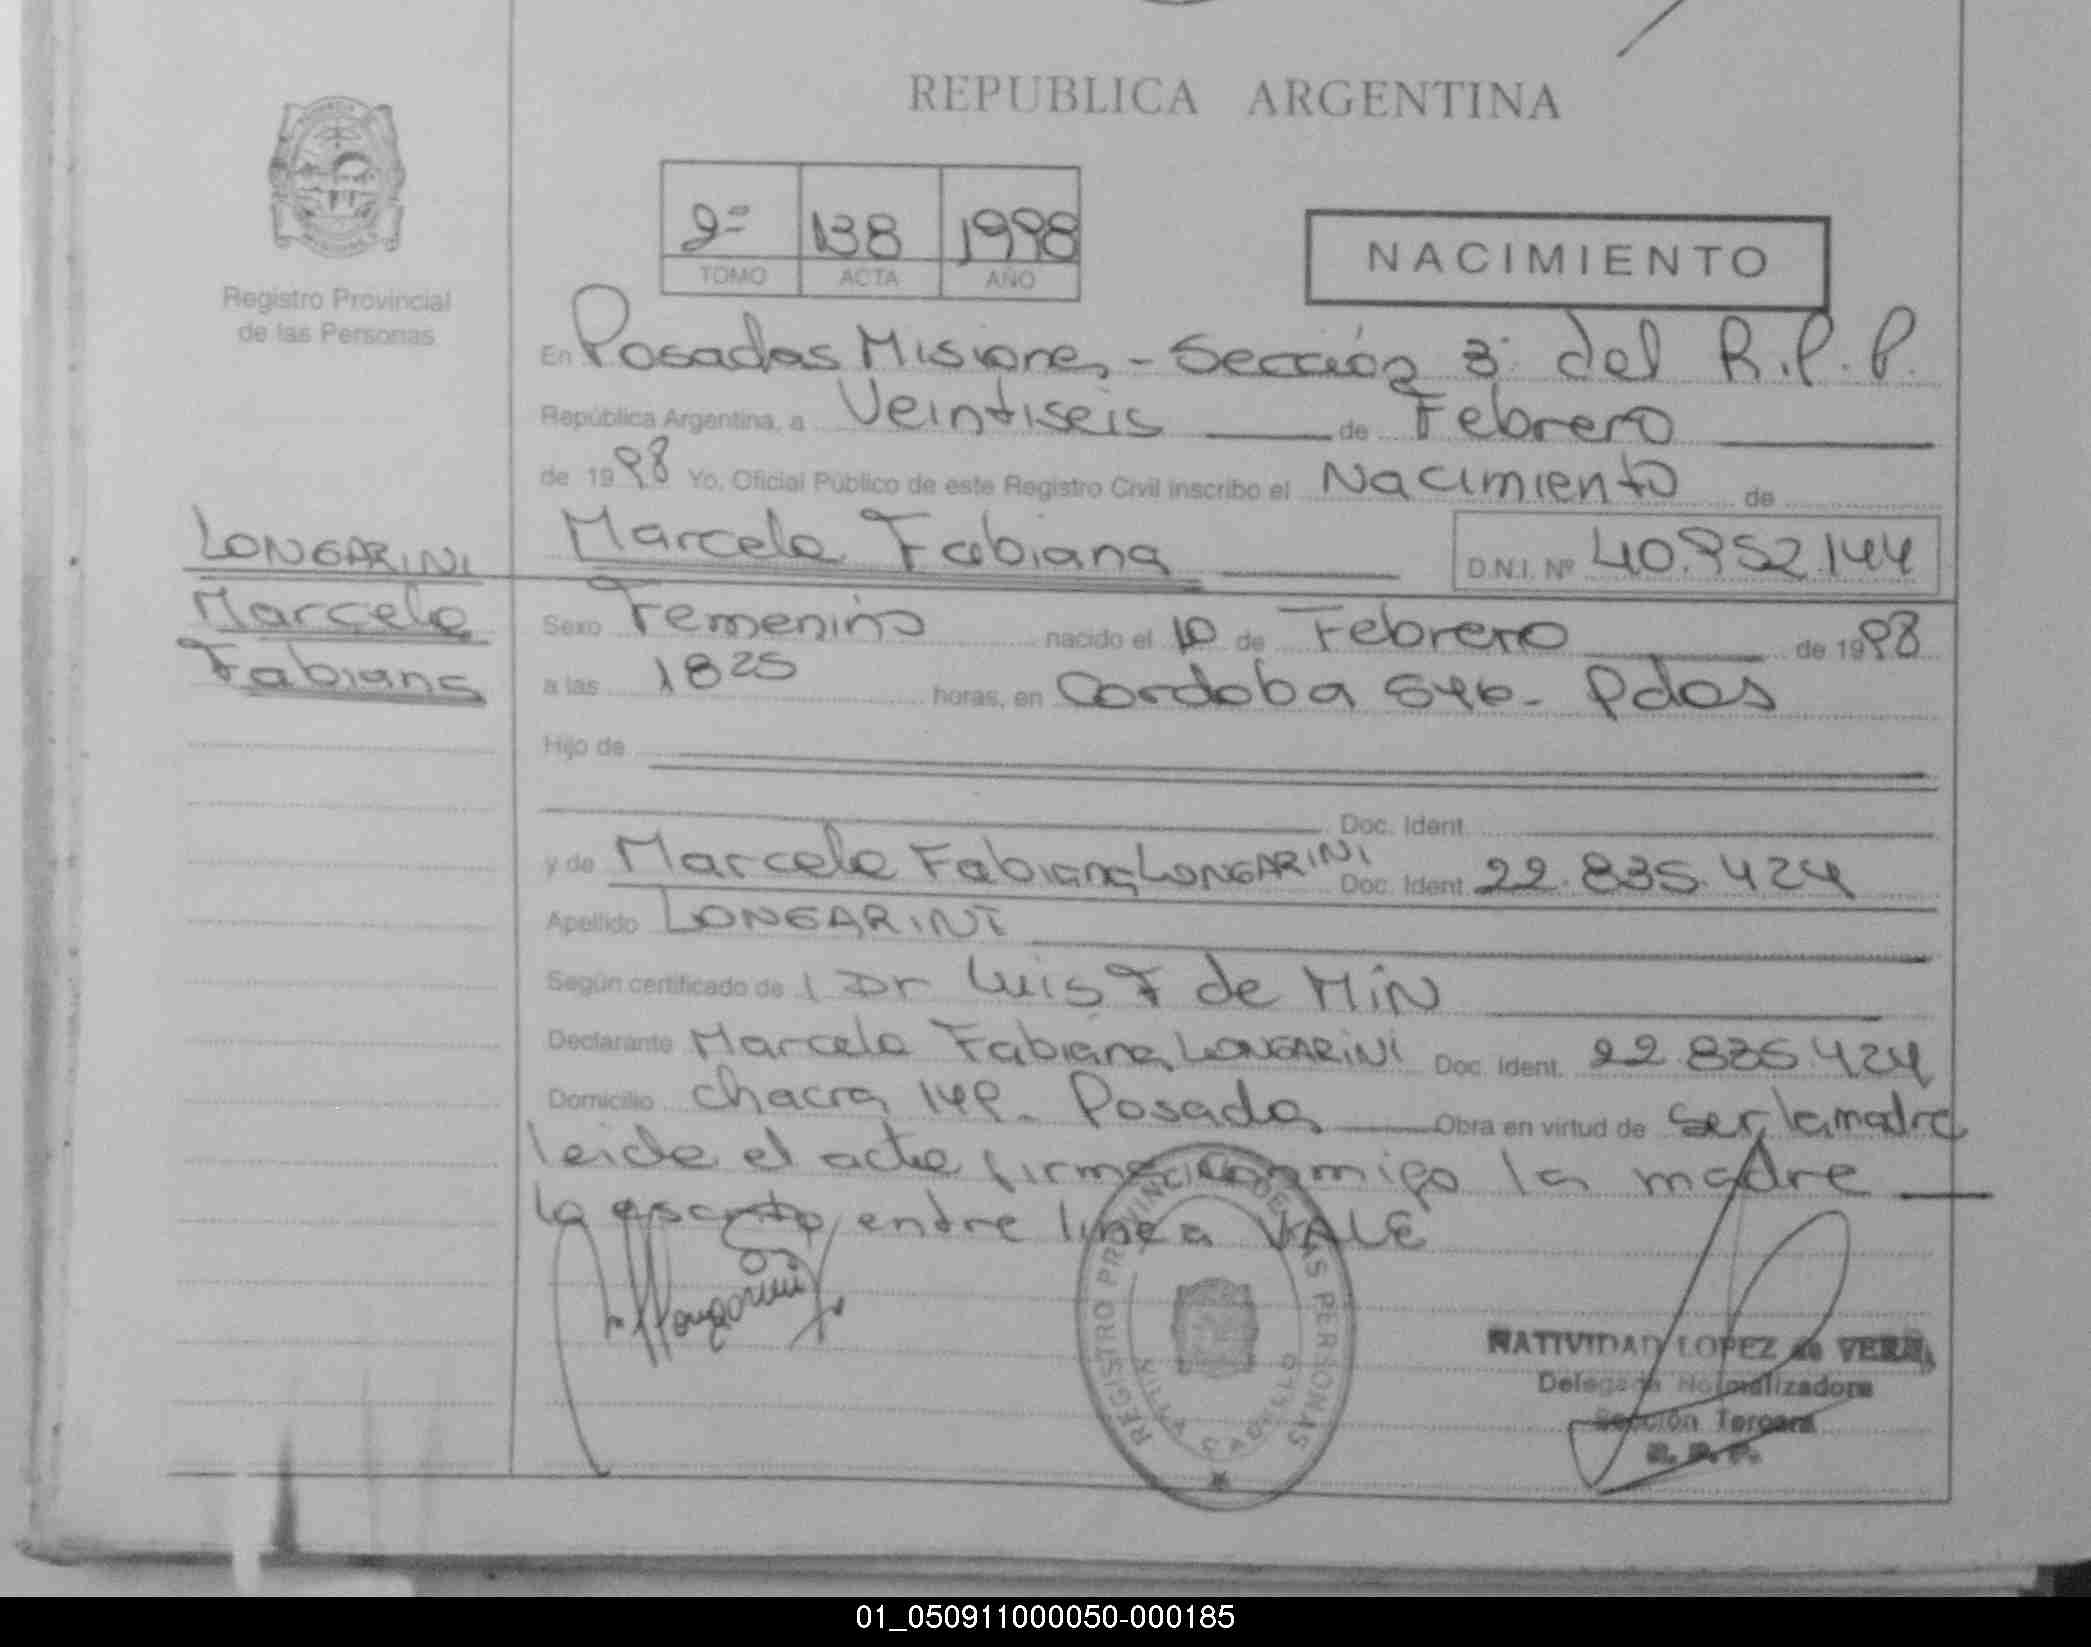 REPUBLICA ARGENTINA
2º 138 1998
TOMO ACTA AÑO
NACIMIENTO
Registro Provincial
de las Personas
En Posadas Misiones - Sección 3ª del R.P.P.
República Argentina, a Veintiseis de Febrero
de 1998 Yo, Oficial Público de este Registro Civil inscribo el Nacimiento de
LONGARINI
Marcela
Fabiana
Marcela Fabiana D.N.I. Nº 40.952.144
Sexo Femenino nacido el 10 de Febrero de 1998
a las 1825 horas, en Cordoba 546 - Pdas
Hijo de
Doc. Ident.
y de Marcela Fabiana LONGARINI Doc. Ident. 22.835.424
Apellido LONGARINI
Según certificado de Dr Luis F de MiN
Declarante Marcela Fabiana LONGARINI Doc. Ident. 22.835.424
Domicilio Chacra 149 - Posadas Obra en virtud de ser la madre
leida el acta firma conmigo la madre
lo escrito entre linea VALE
Longarini
REGISTRO PROVINCIAL DE LAS PERSONAS
NATIVIDAD LOPEZ de VERA
Delegada Normalizadora
Sección Tercera
R. P. P.
01_050911000050-000185